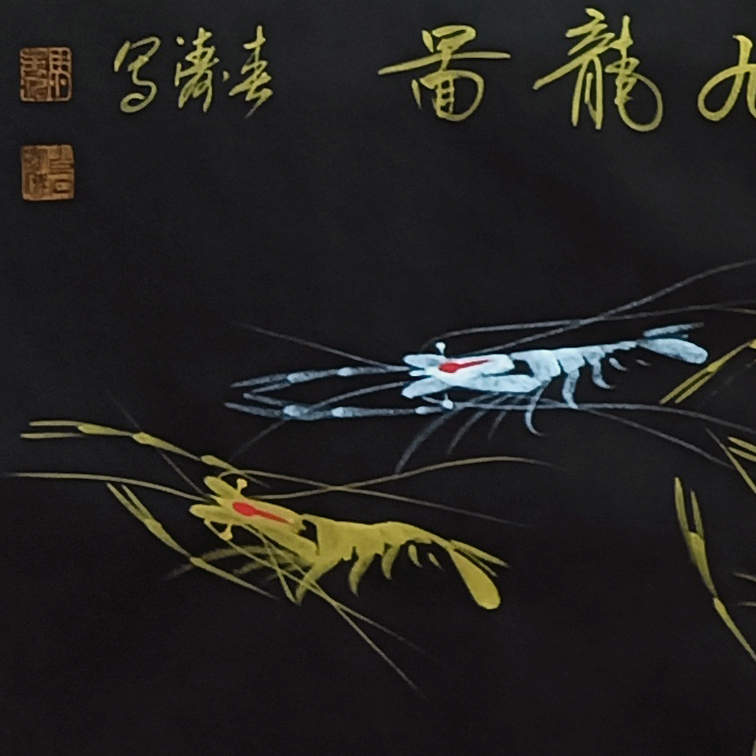 九龍圖
春濤寫